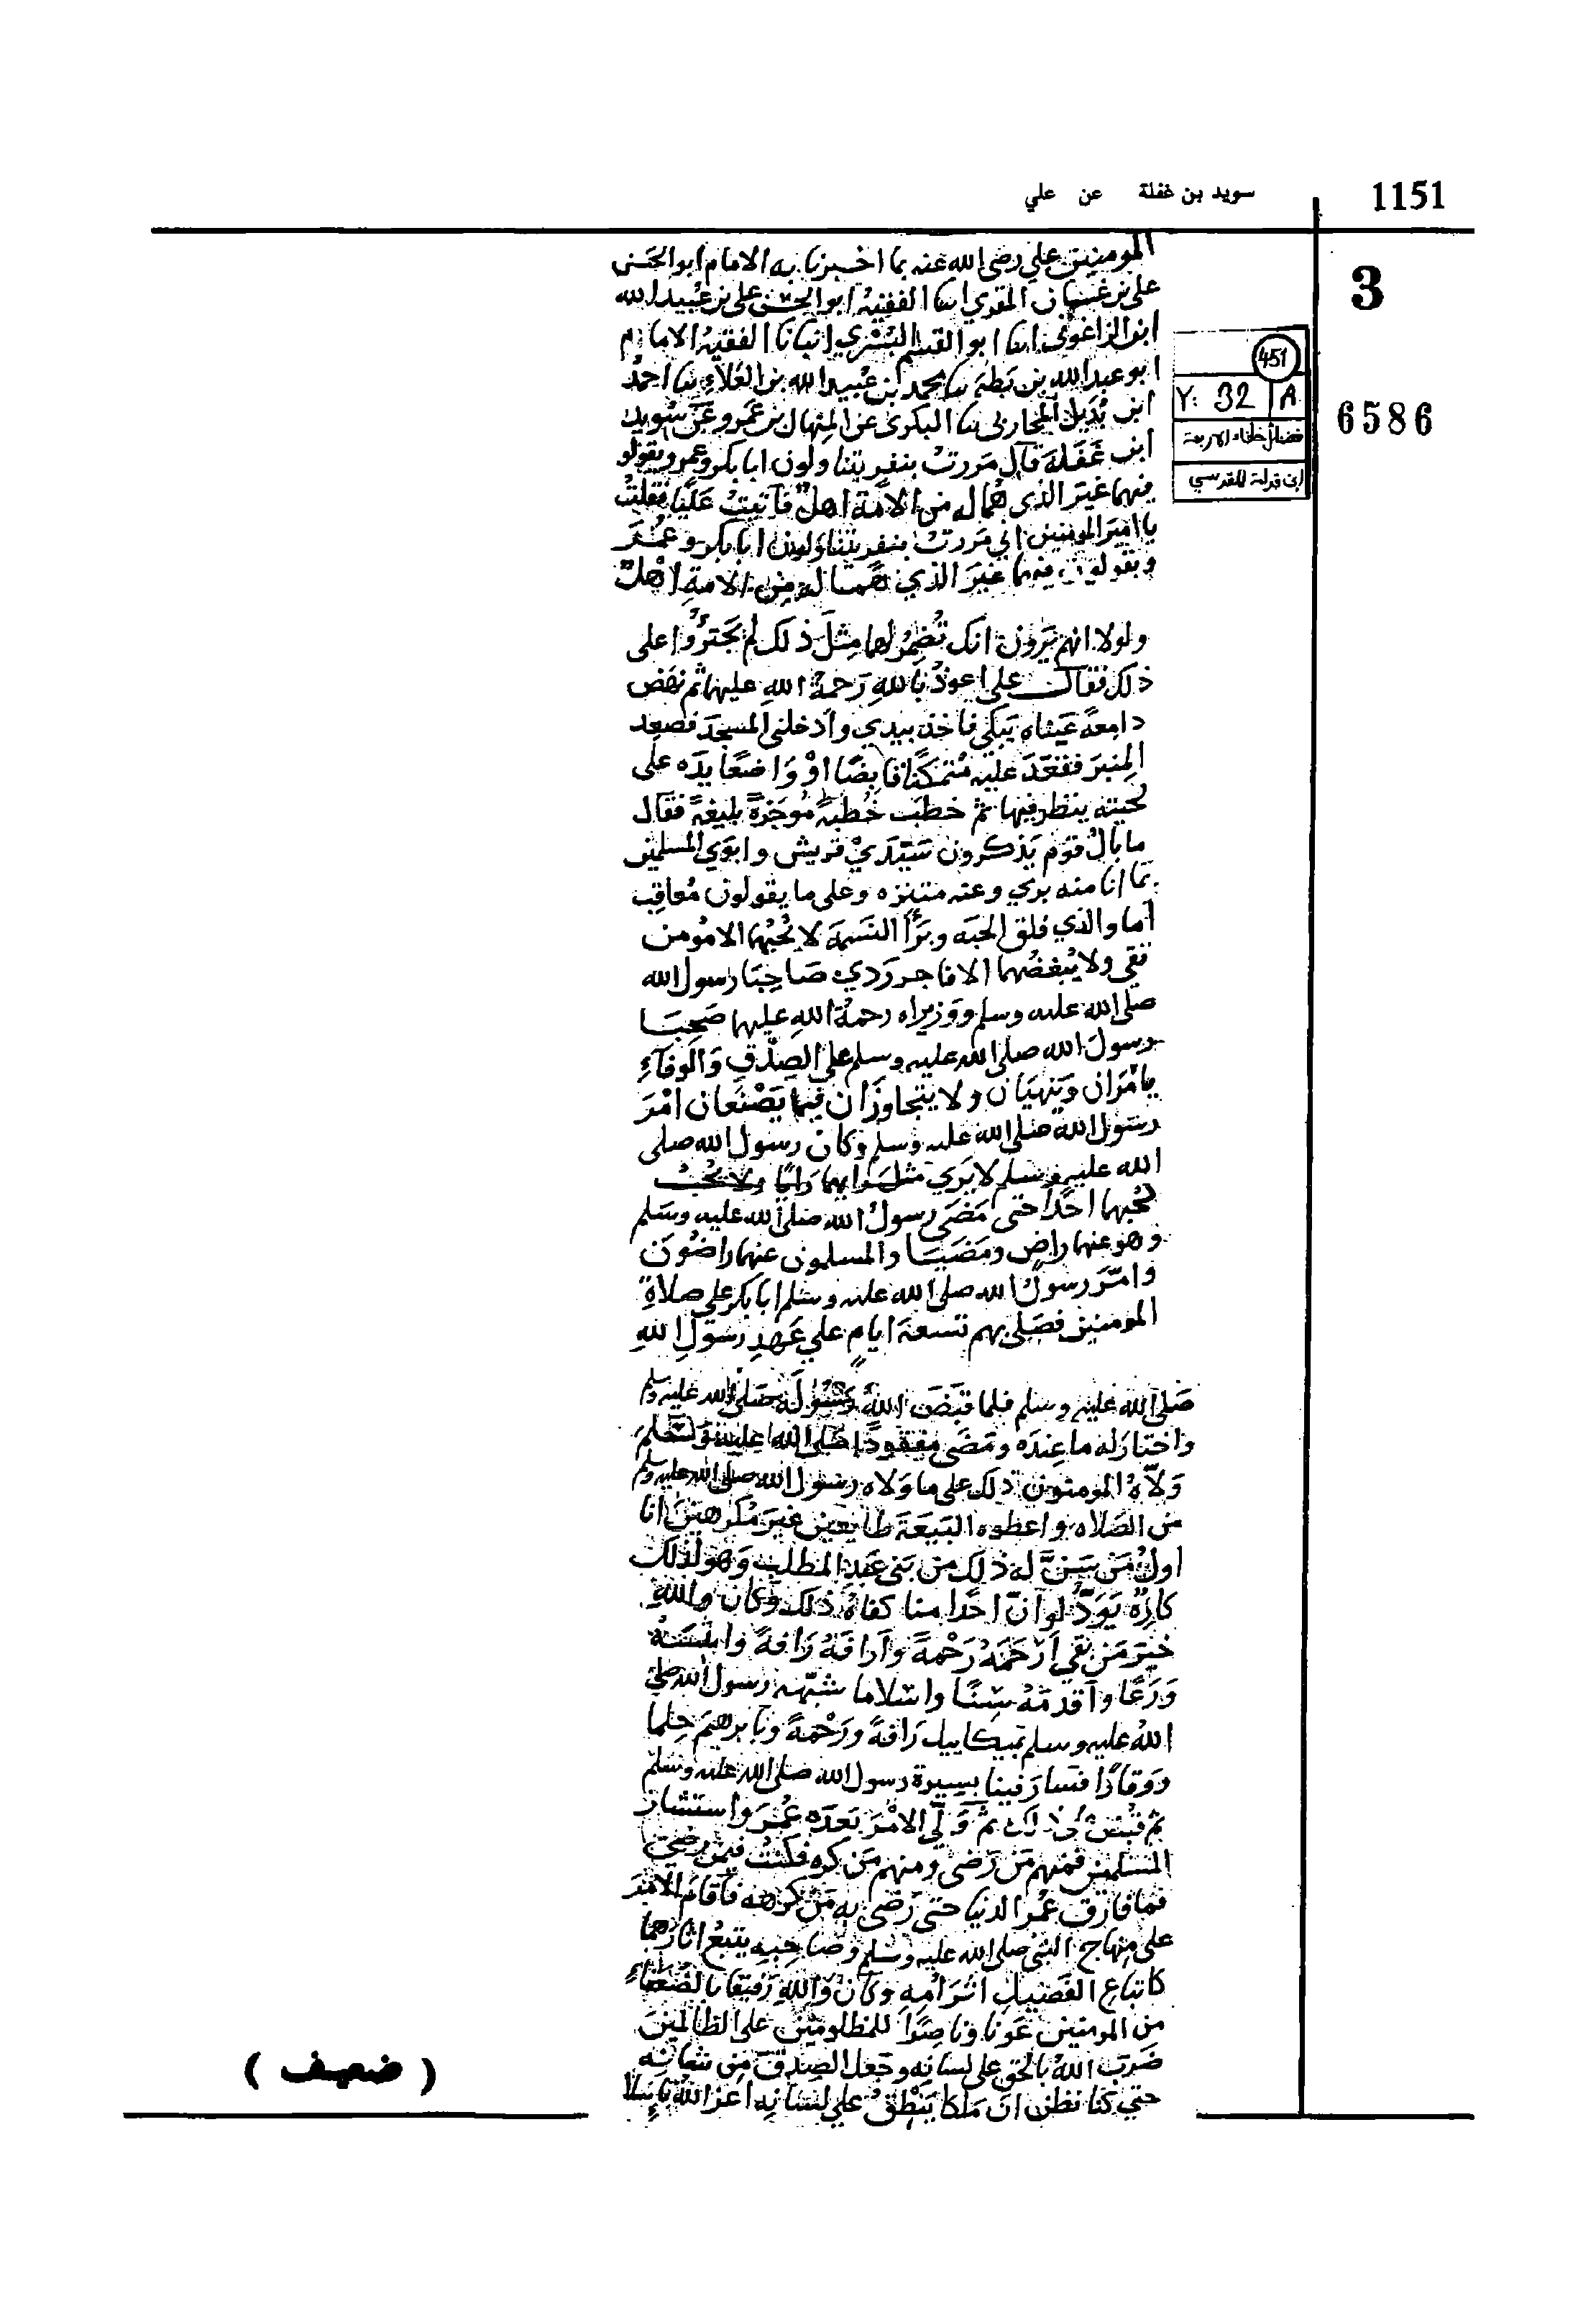 1151
سويد بن غفلة عن علي
3
451
Y: 32 A
6586
فضائل خلفاء الاربعة
ابن قدامة المقدسي
المومنين علي رضي الله عنه بما اخبرنا به الامام ابو الحسن
علي بن عساكر المقري الفقيه ابو الحسن علي بن عبيد الله
ابن الزاغوني ابو القسم البسري انبانا الفقيه الامام
ابو عبد الله بن بطة محمد بن عبيد الله بن العلاء احمد
ابن بديل المحاربي البكري عن المنهال بن عمرو عن سويد
ابن غفلة قال مررت بنفر يتناولون ابا بكر وعمر ويقولو
فيهما غير الذي هما له من الامة اهل فاتيت عليا فقلت
يا امير المومنين اني مررت بنفر يتناولون ابا بكر وعمر
ويقولون فيهما غير الذي هما له من الامة اهل
ولولا انهم يرون انك تضمر لهما مثل ذلك لم يجترؤا على
ذلك فقال علي اعوذ بالله رحمة الله عليهما ثم نهض
دامعة عيناه يبكي فاخذ بيدي وادخلني المسجد فصعد
المنبر فقعد عليه متمكنا قابضا او واضعا يده على
لحيته ينظر فيها ثم خطب خطبة موجزة بليغة فقال
ما بال قوم يذكرون سيدي قريش وابوي المسلمين
بما انا منه بري وعنه متنزه وعلى ما يقولون معاقب
اما والذي فلق الحبه وبرأ النسمة لا يحبهما الا مومن
تقي ولا يبغضهما الا فاجر ردي صاحبا رسول الله
صلى الله عليه وسلم ووزيراه رحمة الله عليهما صحبا
رسول الله صلى الله عليه وسلم على الصدق والوفاء
يامران وينهيان ولا يتجاوزان فيما يصنعان امر
رسول الله صلى الله عليه وسلم وكان رسول الله صلى
الله عليه وسلم لا يري مثل رايهما رايا ولا يحب
كحبهما احدا حتى مضى رسول الله صلى الله عليه وسلم
وهو عنهما راض ومضيا والمسلمون عنهما راضون
وامر رسول الله صلى الله عليه وسلم ابا بكر على صلاة
المومنين فصلى بهم تسعة ايام على عهد رسول الله
صلى الله عليه وسلم فلما قبض الله رسوله صلى الله عليه وسلم
واختار له ما عنده ومضى مفقودا صلى الله عليه وسلم
ولاه المومنون ذلك على ما ولاه رسول الله صلى الله عليه وسلم
من الصلاه واعطوه البيعة طايعين غير مكرهين انا
اول من سن له ذلك من بني عبد المطلب وهو لذلك
كاره يود لو ان احدا منا كفاه ذلك وكان والله
خير من بقي ارحمه رحمة وارافه رافة
ورعا واقدمه سنا واسلاما شبهه رسول الله صلى
الله عليه وسلم بميكاييل رافة ورحمة وبابرهيم حلما
ووقارا فسار فينا بسيرة رسول الله صلى الله عليه وسلم
ثم قبض على ذلك ثم ولى الامر بعده عمر واستشار
المسلمين فمنهم من رضى ومنهم من كره فكنت فيمن رضي
فما فارق عمر الدنيا حتى رضى به من كرهه فاقام الامر
على منهاج النبي صلى الله عليه وسلم وصاحبه يتبع اثارهما
كاتباع الفصيل اثر امه وكان والله رفيقا بالضعفاء
من المومنين عونا وناصرا للمظلومين على الظالمين
ضرب الله بالحق على لسانه وجعل الصدق من شانه
حتى كنا نظن ان ملكا ينطق على لسانه اعز الله باسلا
( ضعيف )